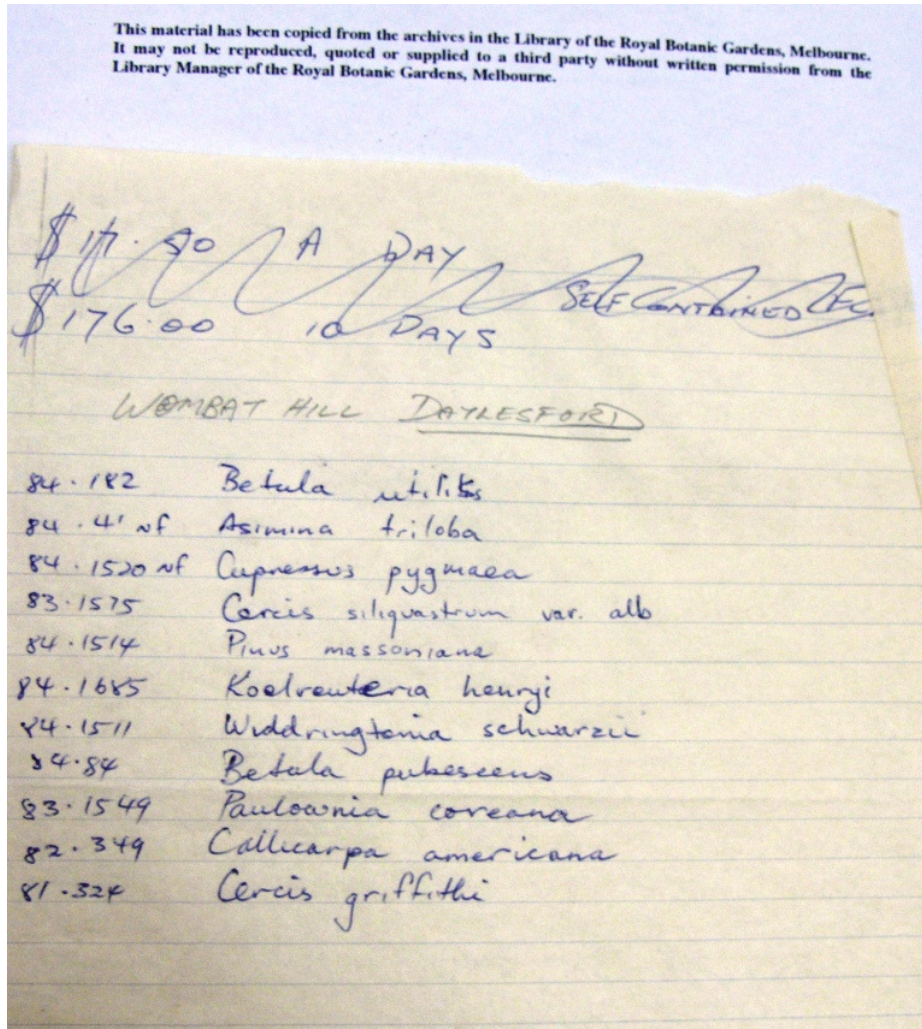 This material has been copied from the archives in the Library of the Royal Botanic Gardens, Melbourne.
It may not be reproduced, quoted or supplied to a third party without written permission from the
Library Manager of the Royal Botanic Gardens, Melbourne.
A DAY
SELF CONTAINED
$176.00 10 DAYS
WOMBAT HILL DAYLESFORD
84.182 Betula utilis
84.41 nf Asimina triloba
84.1520 nf Cupressus pygmaea
83.1575 Cercis siliquastrum var. alb
84.1514 Pinus massoniana
84.1685 Koelreuteria henryi
84.1511 Widdringtonia schwarzii
84.84 Betula pubescens
83.1549 Paulownia coreana
82.349 Callicarpa americana
81.324 Cercis griffithi